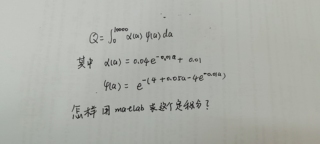 Q = ∫₀^10000 α(a) φ(a) da
其中 α(a) = 0.04e^-0.01a + 0.01
φ(a) = e^-(4 + 0.05a - 4e^-0.01a)
怎样用 matlab 求这个定积分？